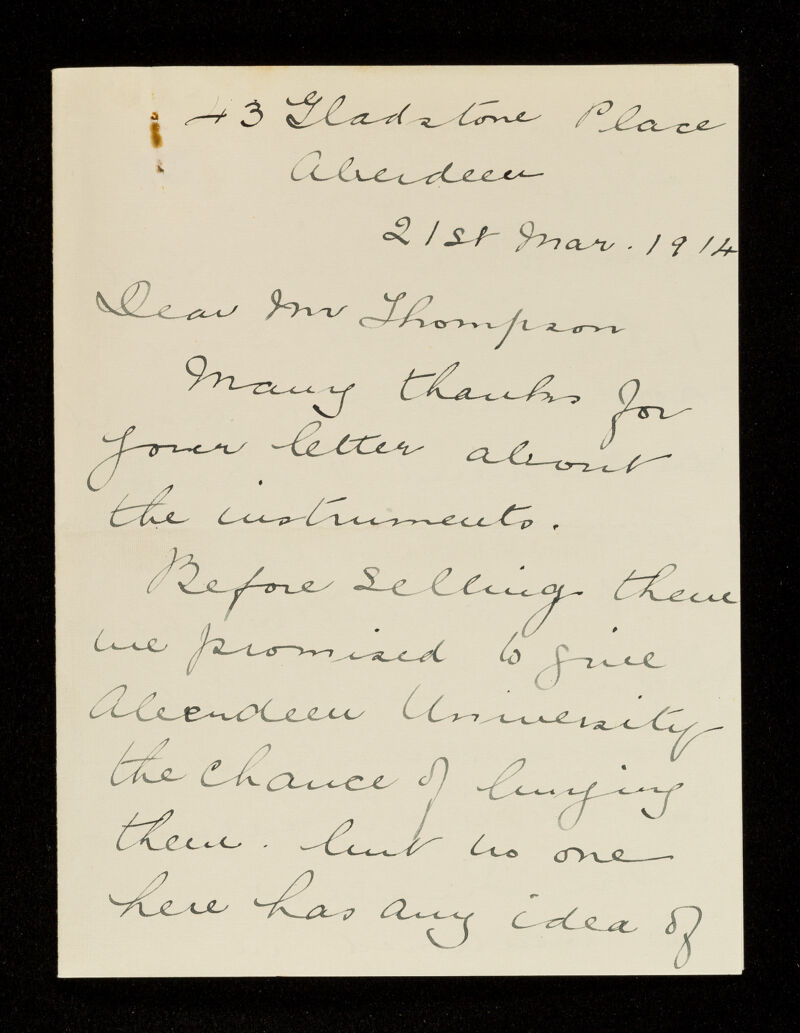 43 Gladstone Place
Aberdeen
21st Mar. 1914
Dear Mr Thompson
Many thanks for
your letter about
the instruments.
Before selling them
we promised to give
Aberdeen University
the chance of buying
them. but no one
here has any idea of